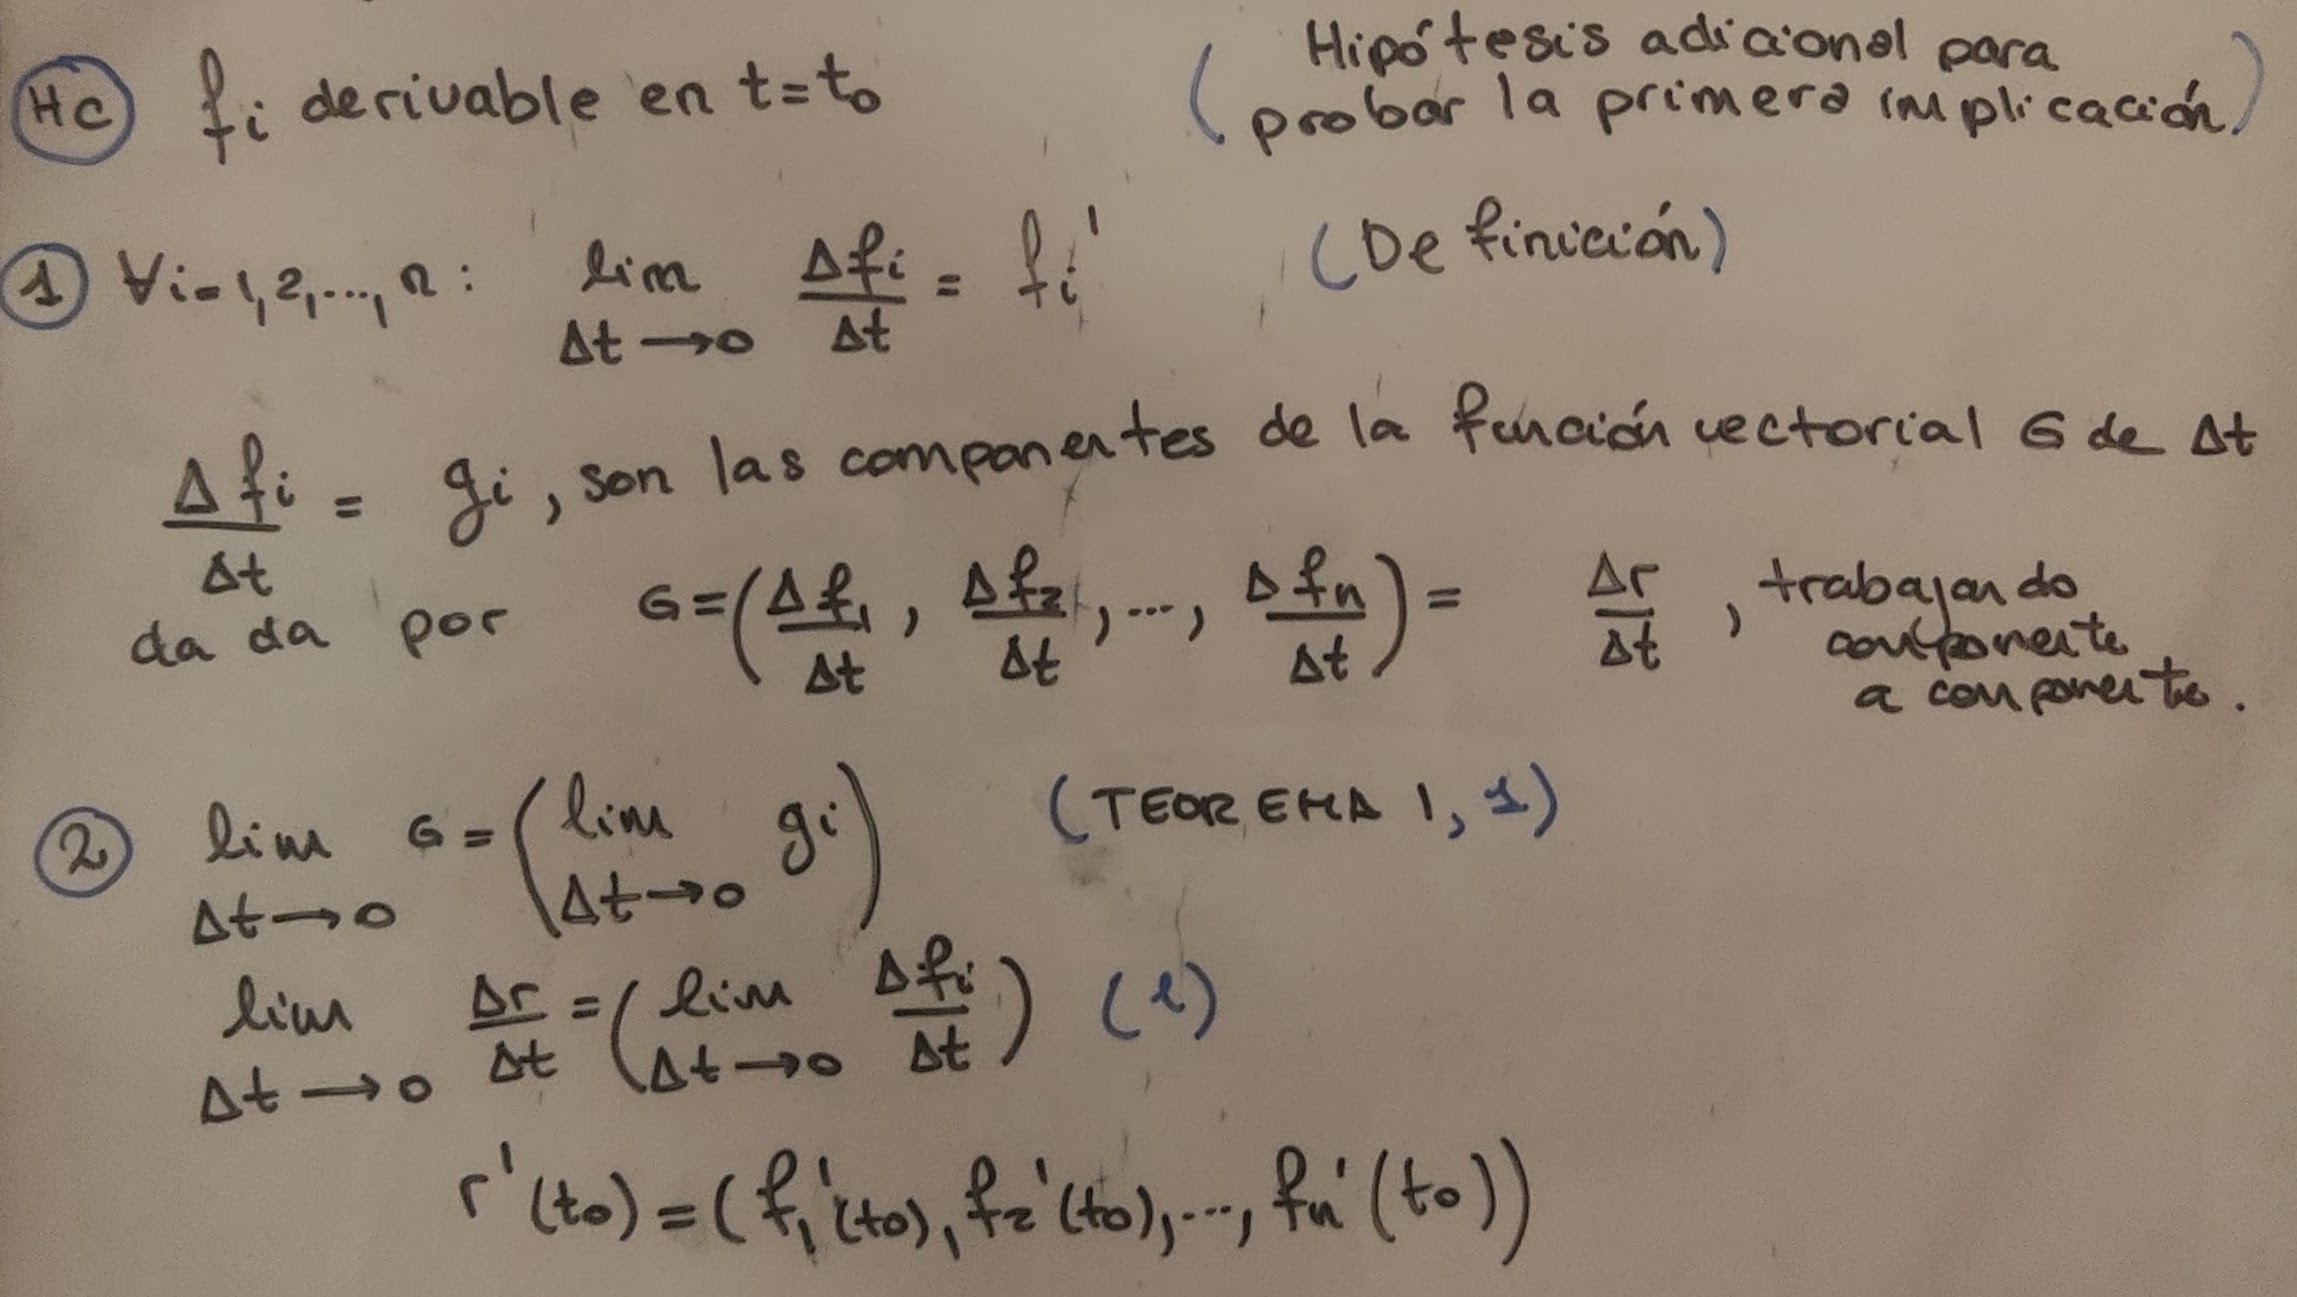 HC fi derivable en t=t₀ (Hipótesis adicional para
probar la primera implicación)
1 ∀i=1,2,...,n: lim Δt→0 Δfi/Δt = fi' (Definición)
Δfi/Δt = gi, son las componentes de la función vectorial G de Δt
dada por G=(Δf₁/Δt, Δf₂/Δt,..., Δfn/Δt)= Δr/Δt, trabajando
componente
a componente.
2 lim Δt→0 G=(lim Δt→0 gi) (TEOREMA 1, 1)
lim Δt→0 Δr/Δt=(lim Δt→0 Δfi/Δt)
r'(t₀)=(f₁'(t₀), f₂'(t₀),..., fn'(t₀))